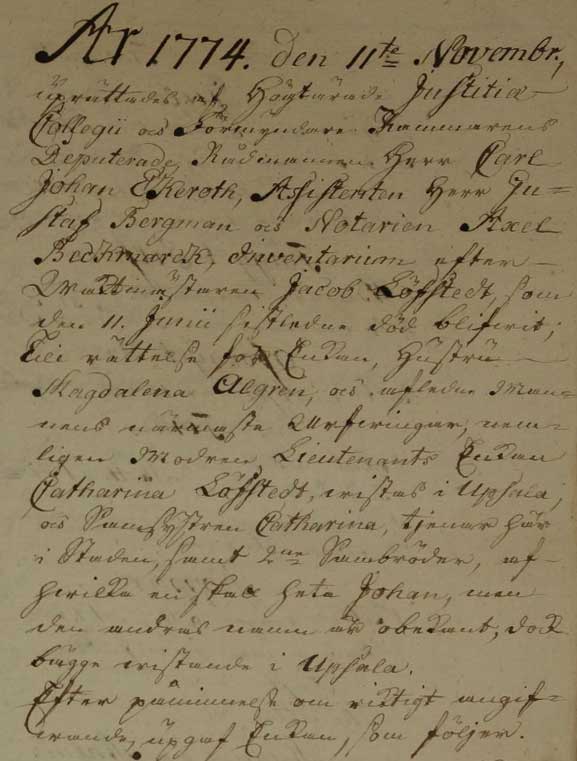 År 1774. den 11te Novembr.,
uprättades af Högtärade Justitiæ
Collegii och Förmyndare Kammarens
Deputerade, Rådmannen Herr Carl
Johan Ekeroth, Assistenten Herr Gu-
staf Bergman och Notarien Axel
Beckmarck, Inventarium efter
Wacktmästaren Jacob Löfstedt, som
den 11. Junii sistledne död blifwit;
Till rättelse för Enkan, Hustru
Magdalena Algren, och afledne Man-
nens närmaste Arfwingar, nem-
ligen Modren Lieutenants Enkan
Catharina Löfstedt, wistas i Upsala,
och Samsystren Catharina, tjenar här
i Staden, samt 2ne Sambröder, af
hwilka en skall heta Johan, men
den andras namn är obekant, dock
bägge wistande i Upsala.
Efter påminnelse om richtigt angif-
wande, upgaf Enkan, som följer.